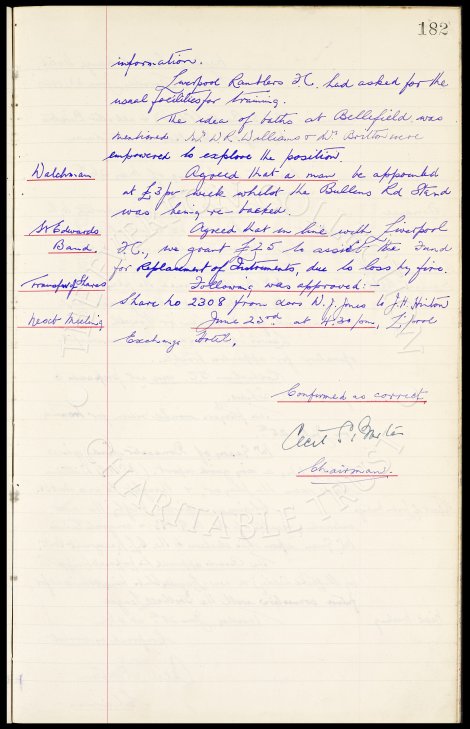 182
information.
Liverpool Ramblers F.C. had asked for the
usual facilities for training.
The idea of baths at Bellefield was
mentioned. Mr W.R. Williams & Mr Britton were
empowered to explore the position.
Watchman Agreed that a man be appointed
at £3 per week whilst the Bullens Rd Stand
was being re-backed.
St Edwards Agreed that in line with Liverpool
Band. F.C., we grant £25 to assist the Fund
for Replacement of Instruments, due to loss by fire.
Transfer of Shares Following was approved:-
Share No 2308 from N. J. Jones to J.H.
Next Meeting June 23rd at 4.30pm, L.pool
Exchange Hotel.
Confirmed as correct
Cecil S.
Chairman.
CHARITABLE TRUST